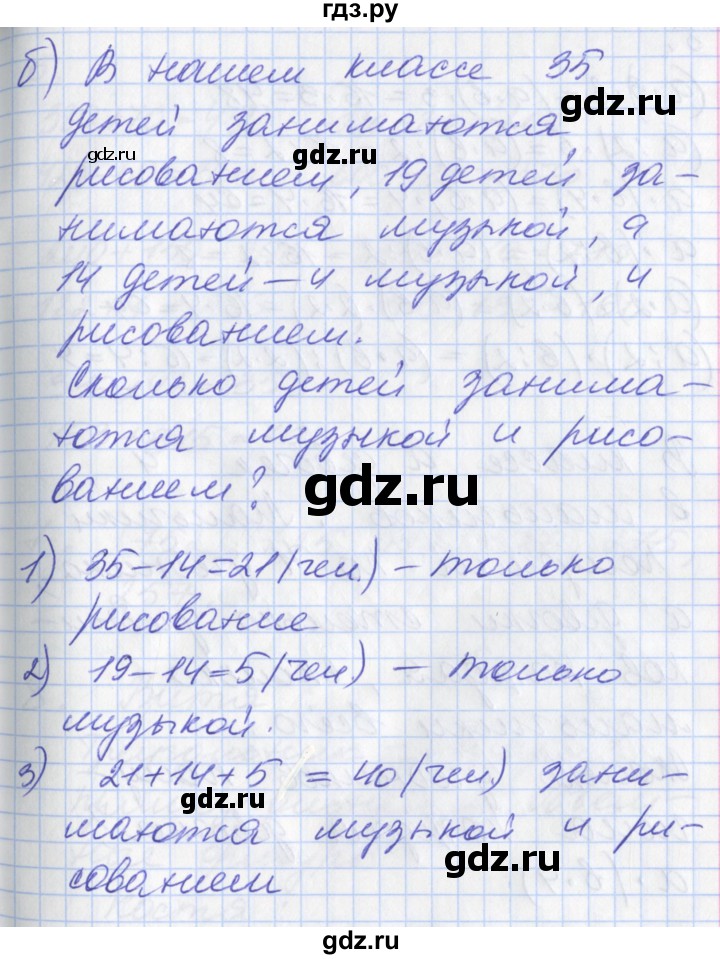 гдз.ру
б) В нашем классе 35
gdz.ru
детей занимаются
gdz.ru
рисованием, 19 детей за-
нимаются музыкой, а
14 детей – и музыкой, и
рисованием.
Сколько детей занима-
ются музыкой и рисо-
ванием?
gdz.ru
1) 35-14=21(чел.) – только
рисование
2) 19-14=5(чел) – только
музыкой.
3) 21+14+5 = 40(чел.) зани-
gdz.ru
маются музыкой и ри-
gdz.ru
сованием
gdz.ru